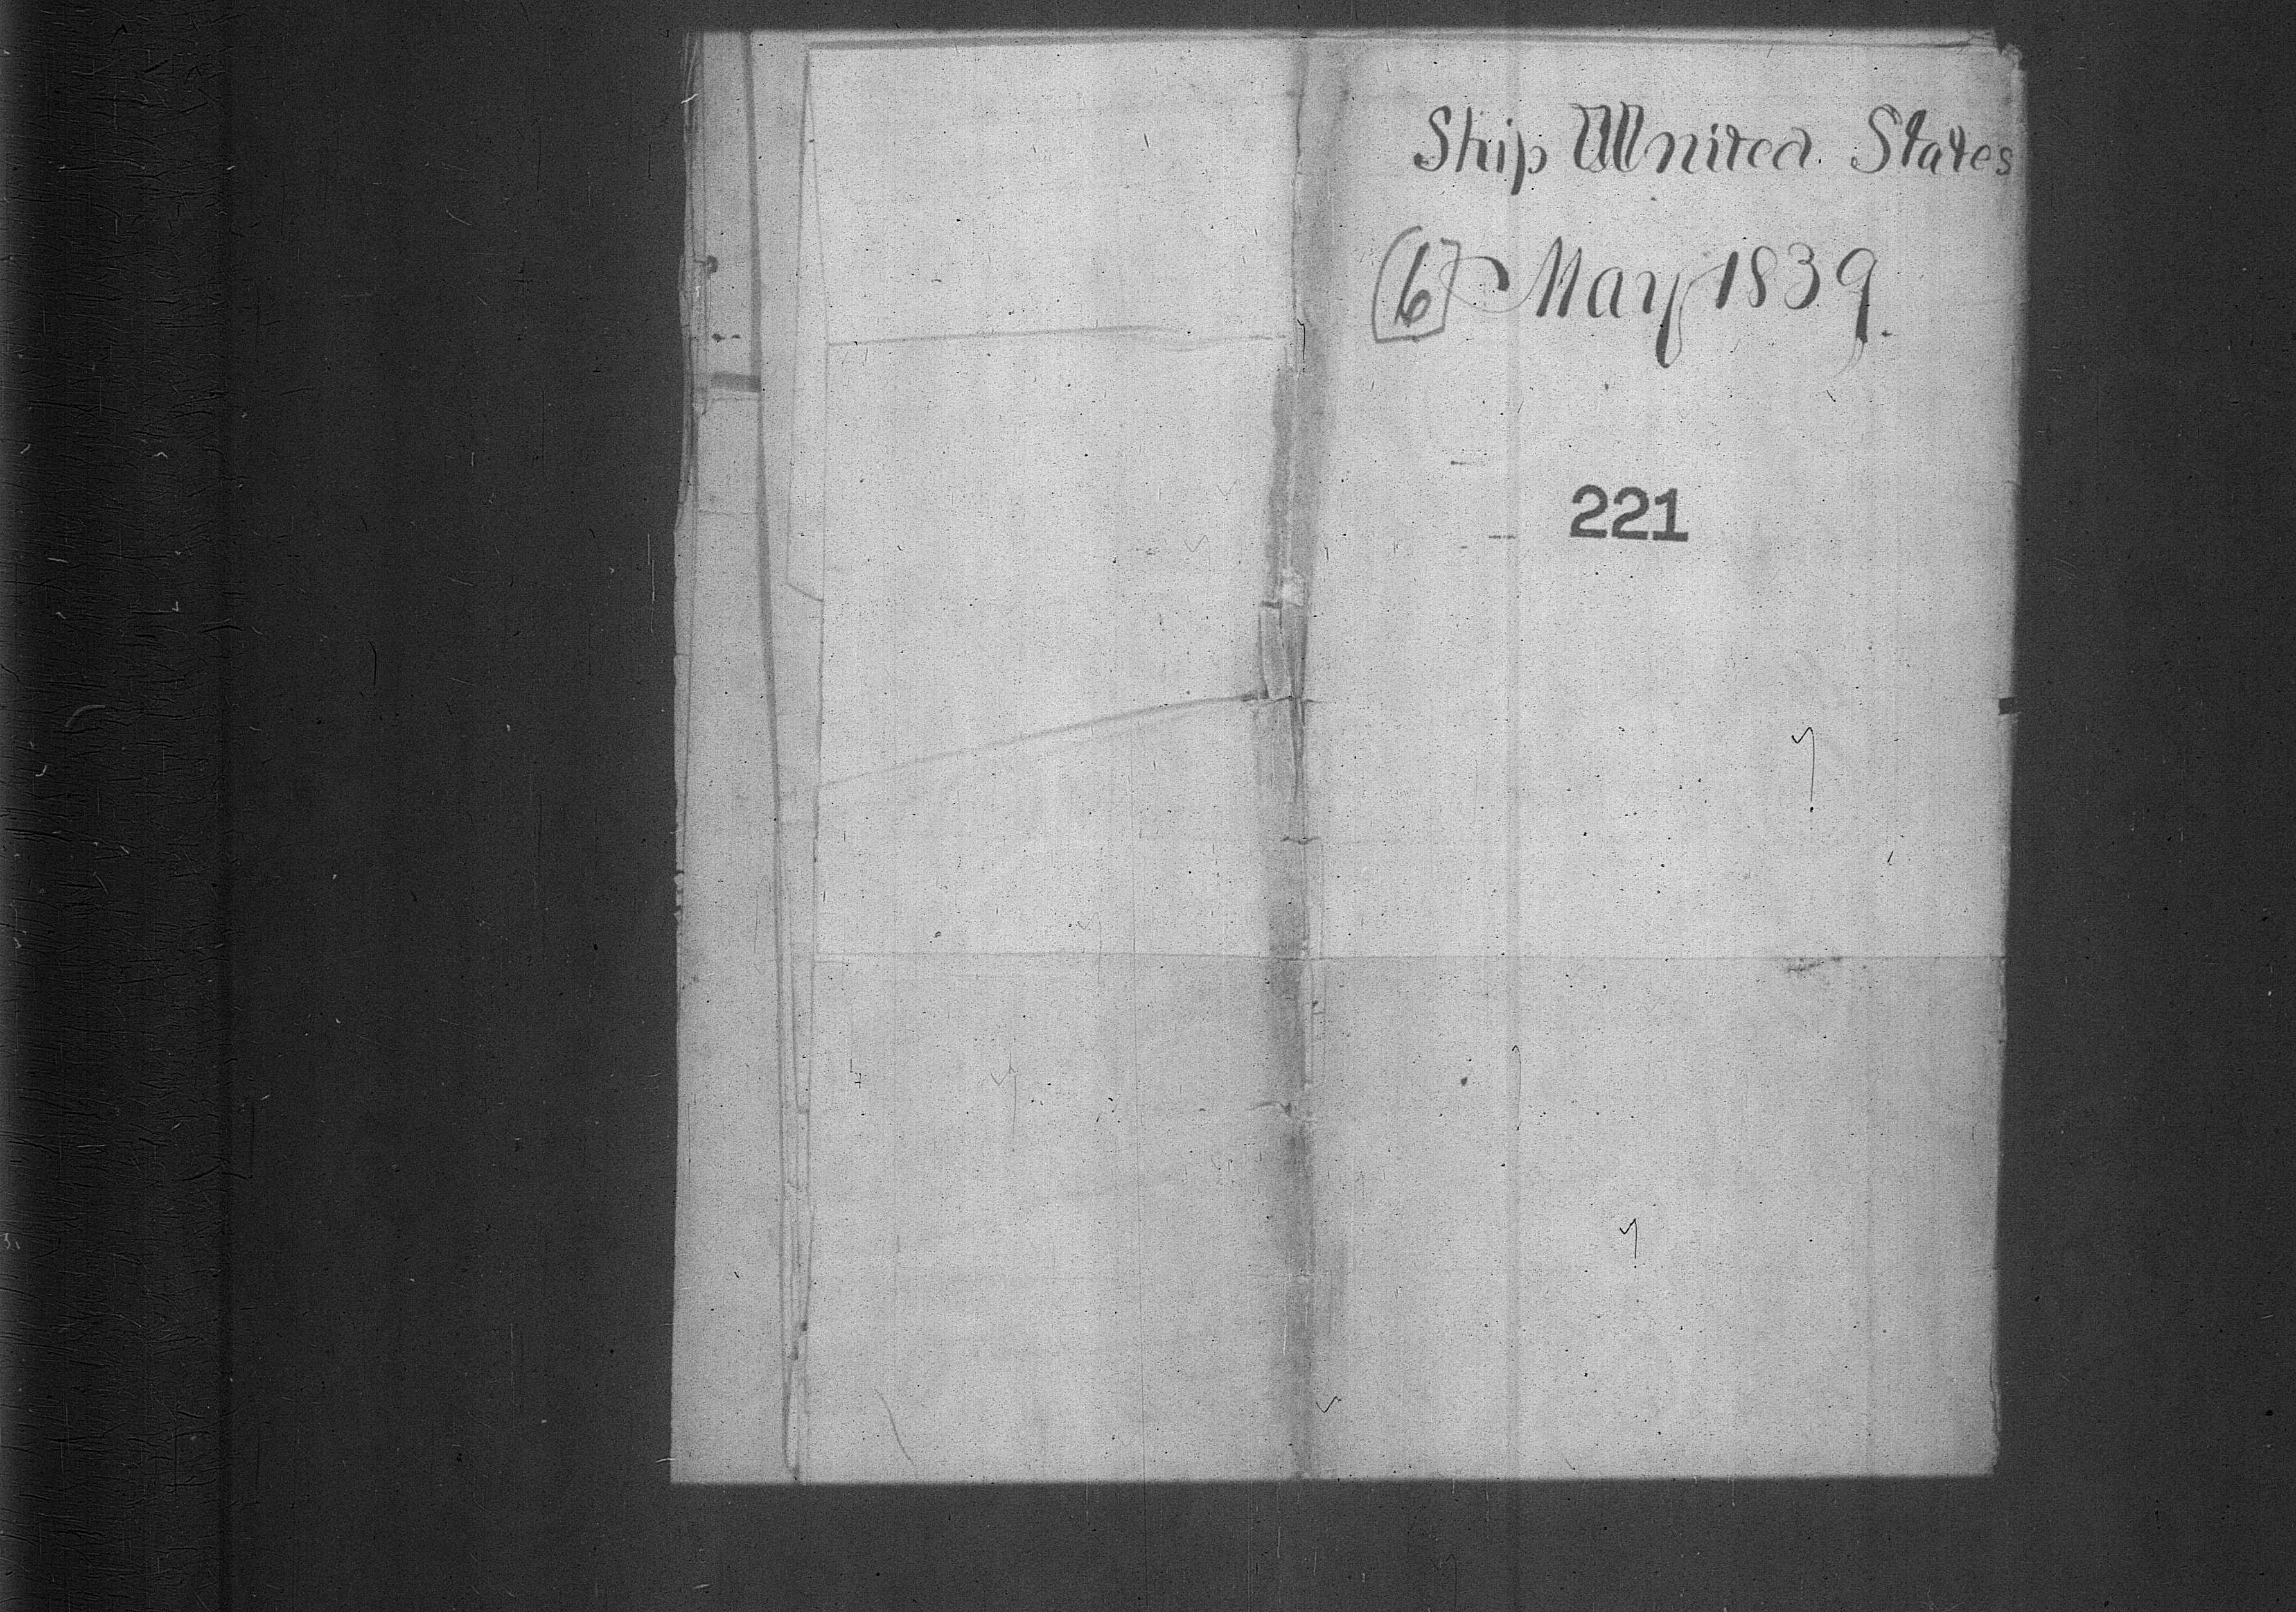 Ship United States
[6] May 1839.
221